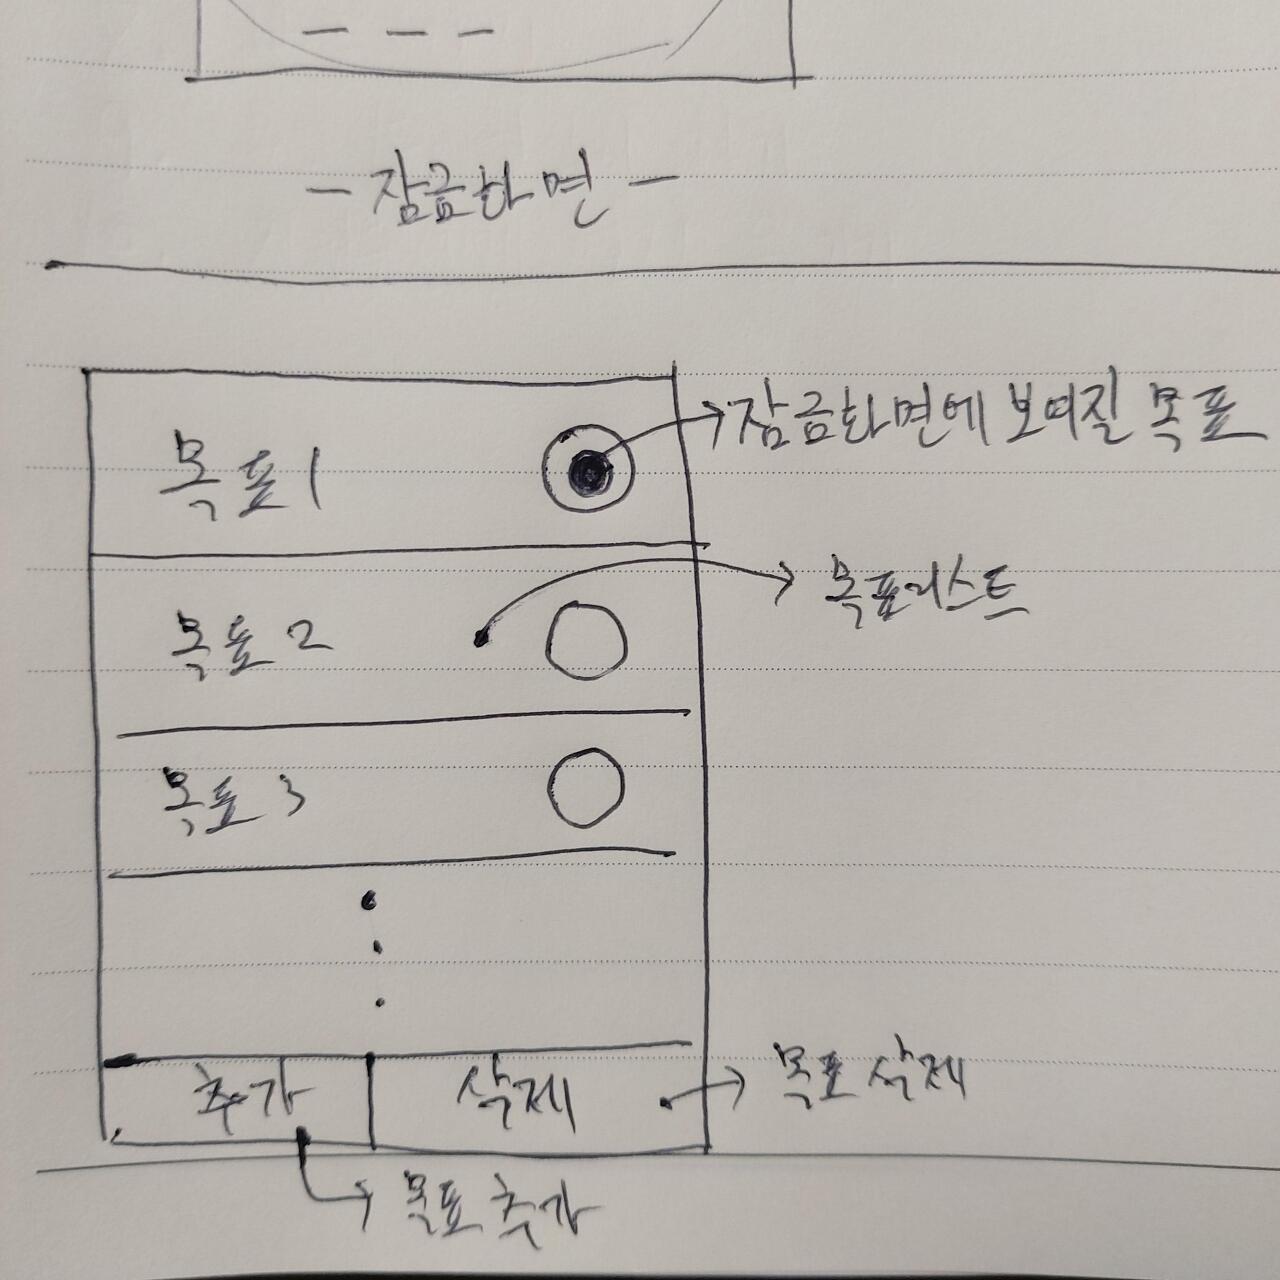 - 잠금화면 -
목표 1
잠금화면에 보여질 목표
목표리스트
목표 2
목표 3
추가
삭제
목표 삭제
목표 추가